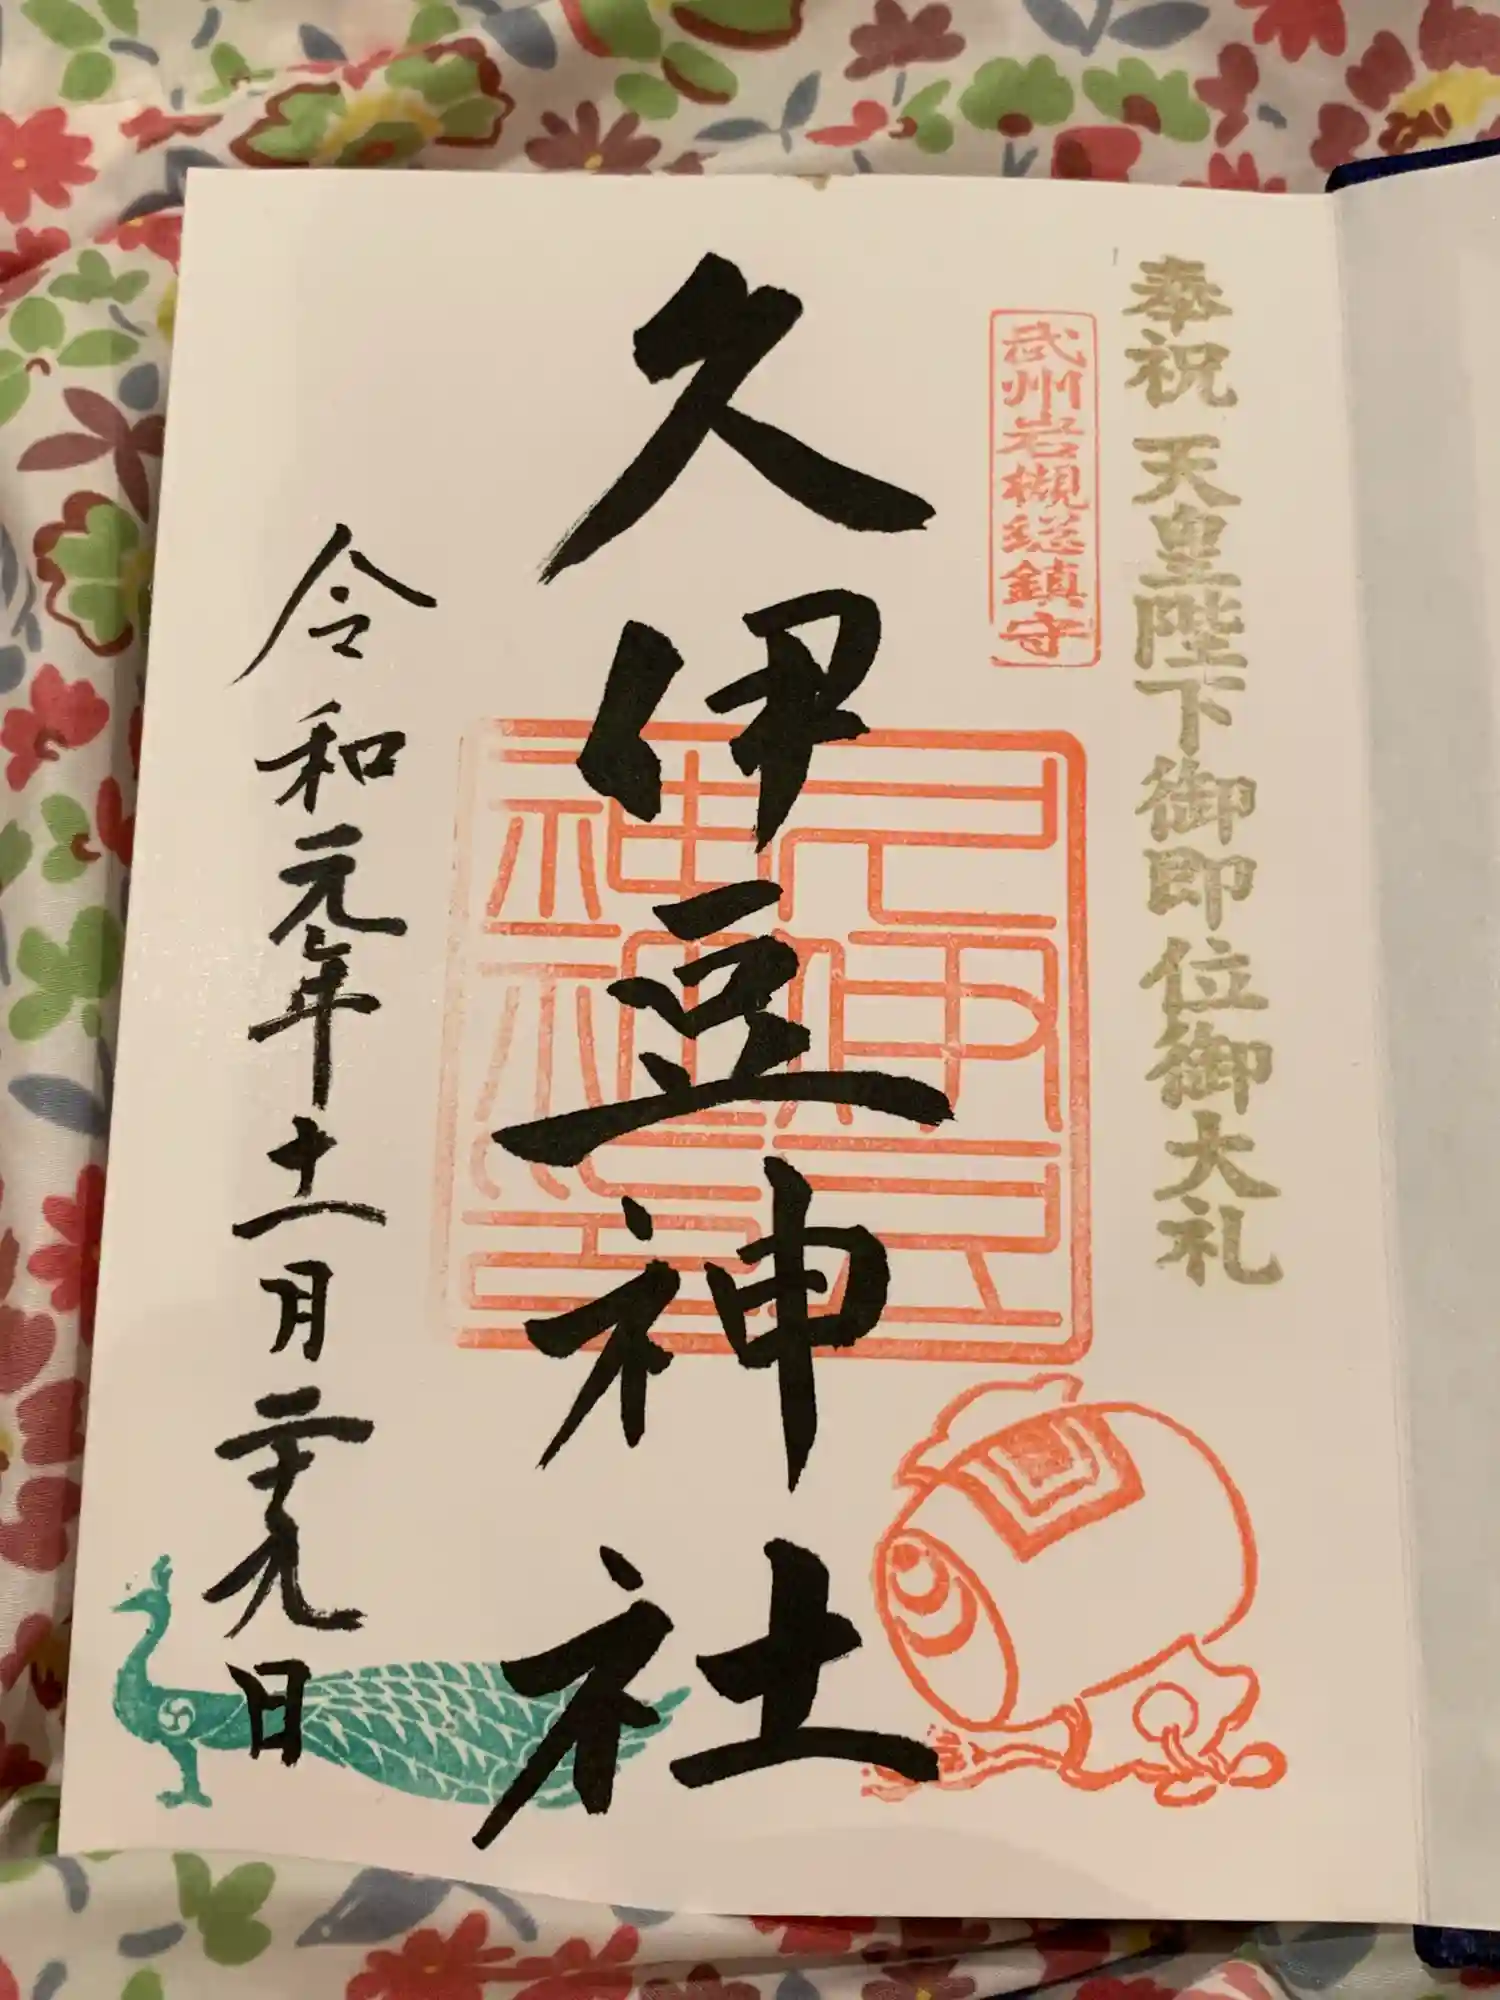 奉祝 天皇陛下御即位御大礼
武州岩槻総鎮守
久伊豆神社
令和元年十一月二十九日